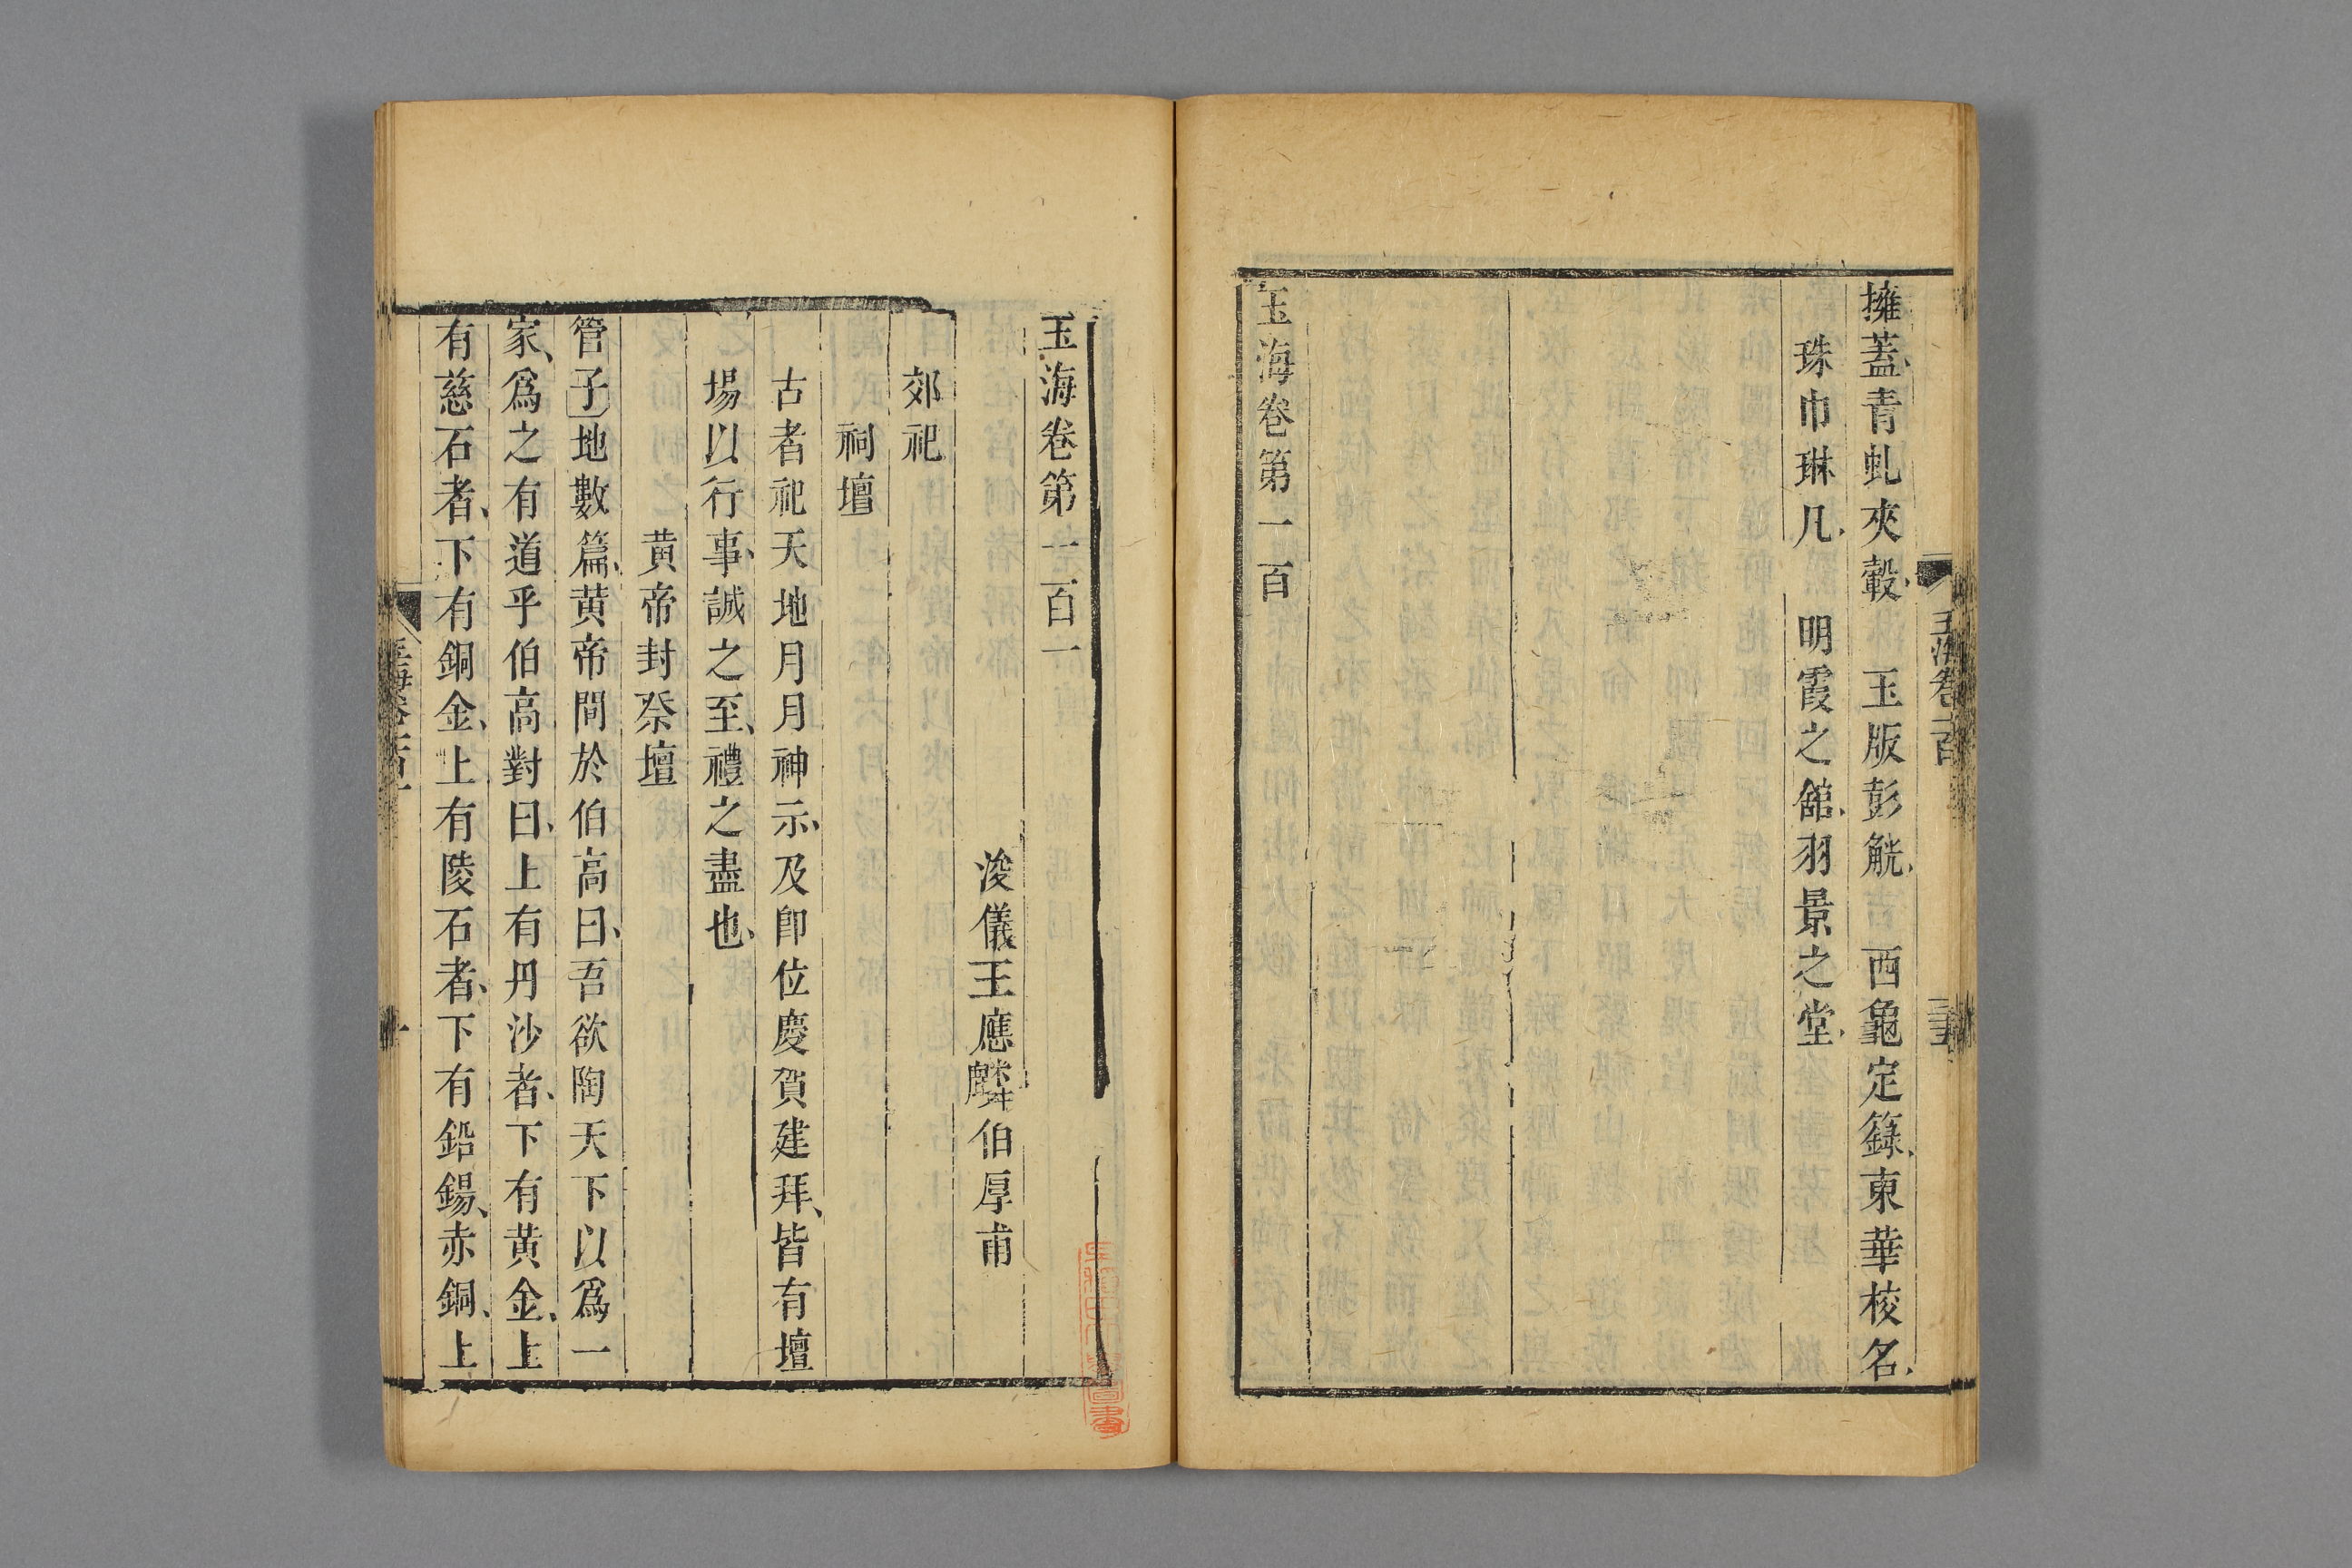 擁蓋、青虬夾轂、玉版彭觥、西龜定籙、東華校名、
珠巾琳几、明霞之館、羽景之堂、
玉海卷第一百
玉海卷一百
玉海卷第一百一
浚儀王應麟伯厚甫
郊祀
祠壇
古者祀天地月月神示、及卽位慶賀建拜、皆有壇
場以行事、誠之至、禮之盡也、
黄帝封祭壇
管子地數篇、黄帝問於伯高曰、吾欲陶天下以爲一
家、爲之有道乎伯高對曰、上有丹沙者、下有黄金、上
有慈石者、下有銅金、上有陵石者、下有鉛錫、赤銅、上